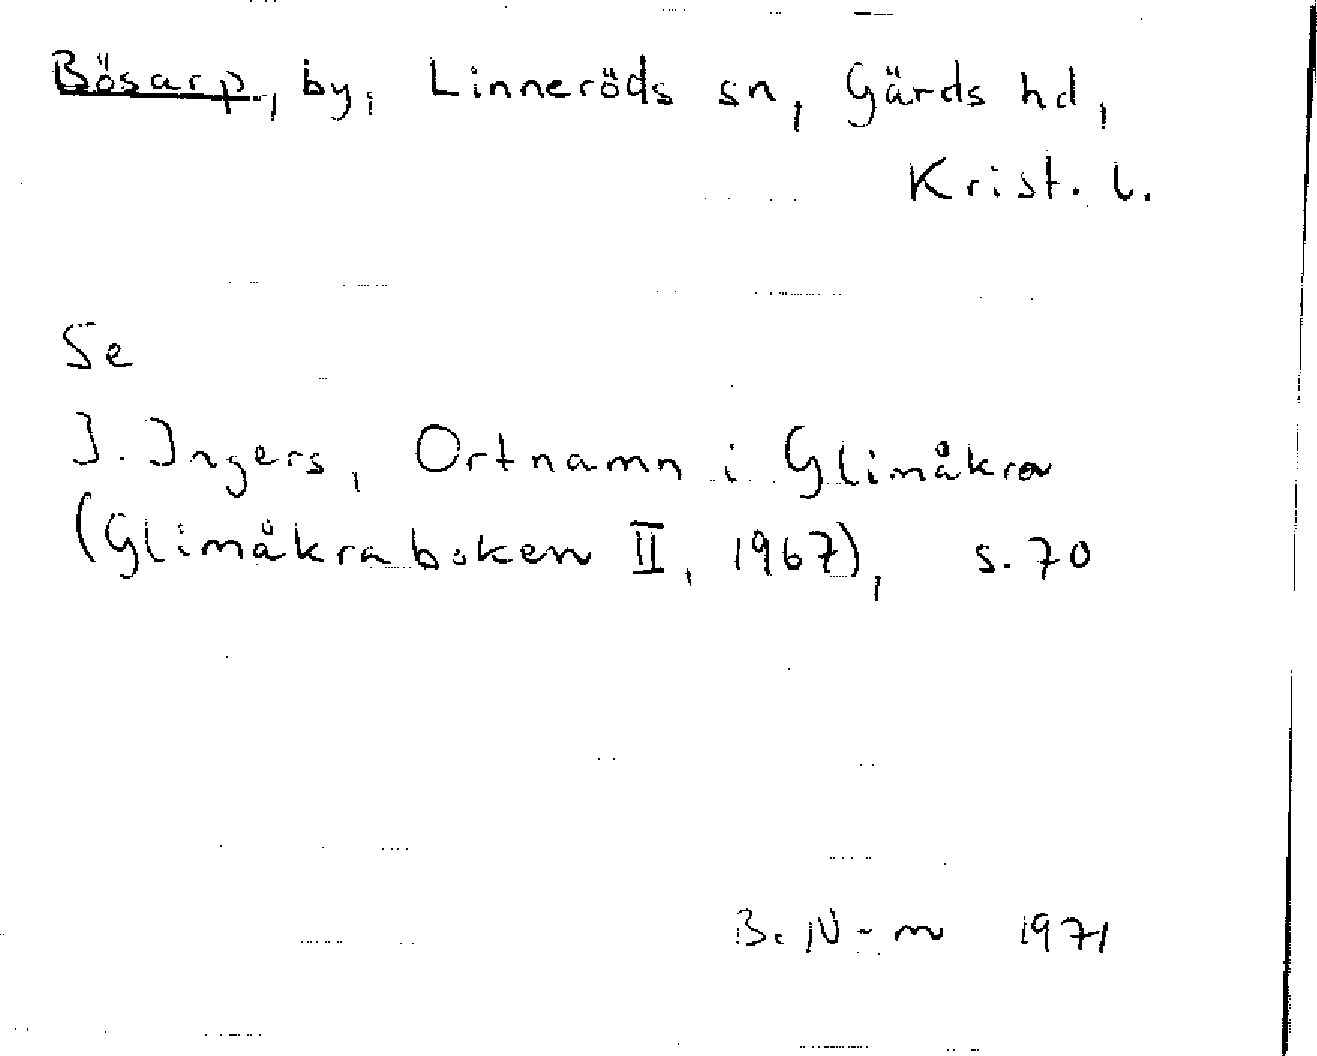 Bösarp, by, Linneröds sn, Gärds hd,
Krist. l.
Se
I. Ingers, Ortnamn i Glimåkra
(Glimåkraboken II, 1967), s. 70
B. N-m 1971